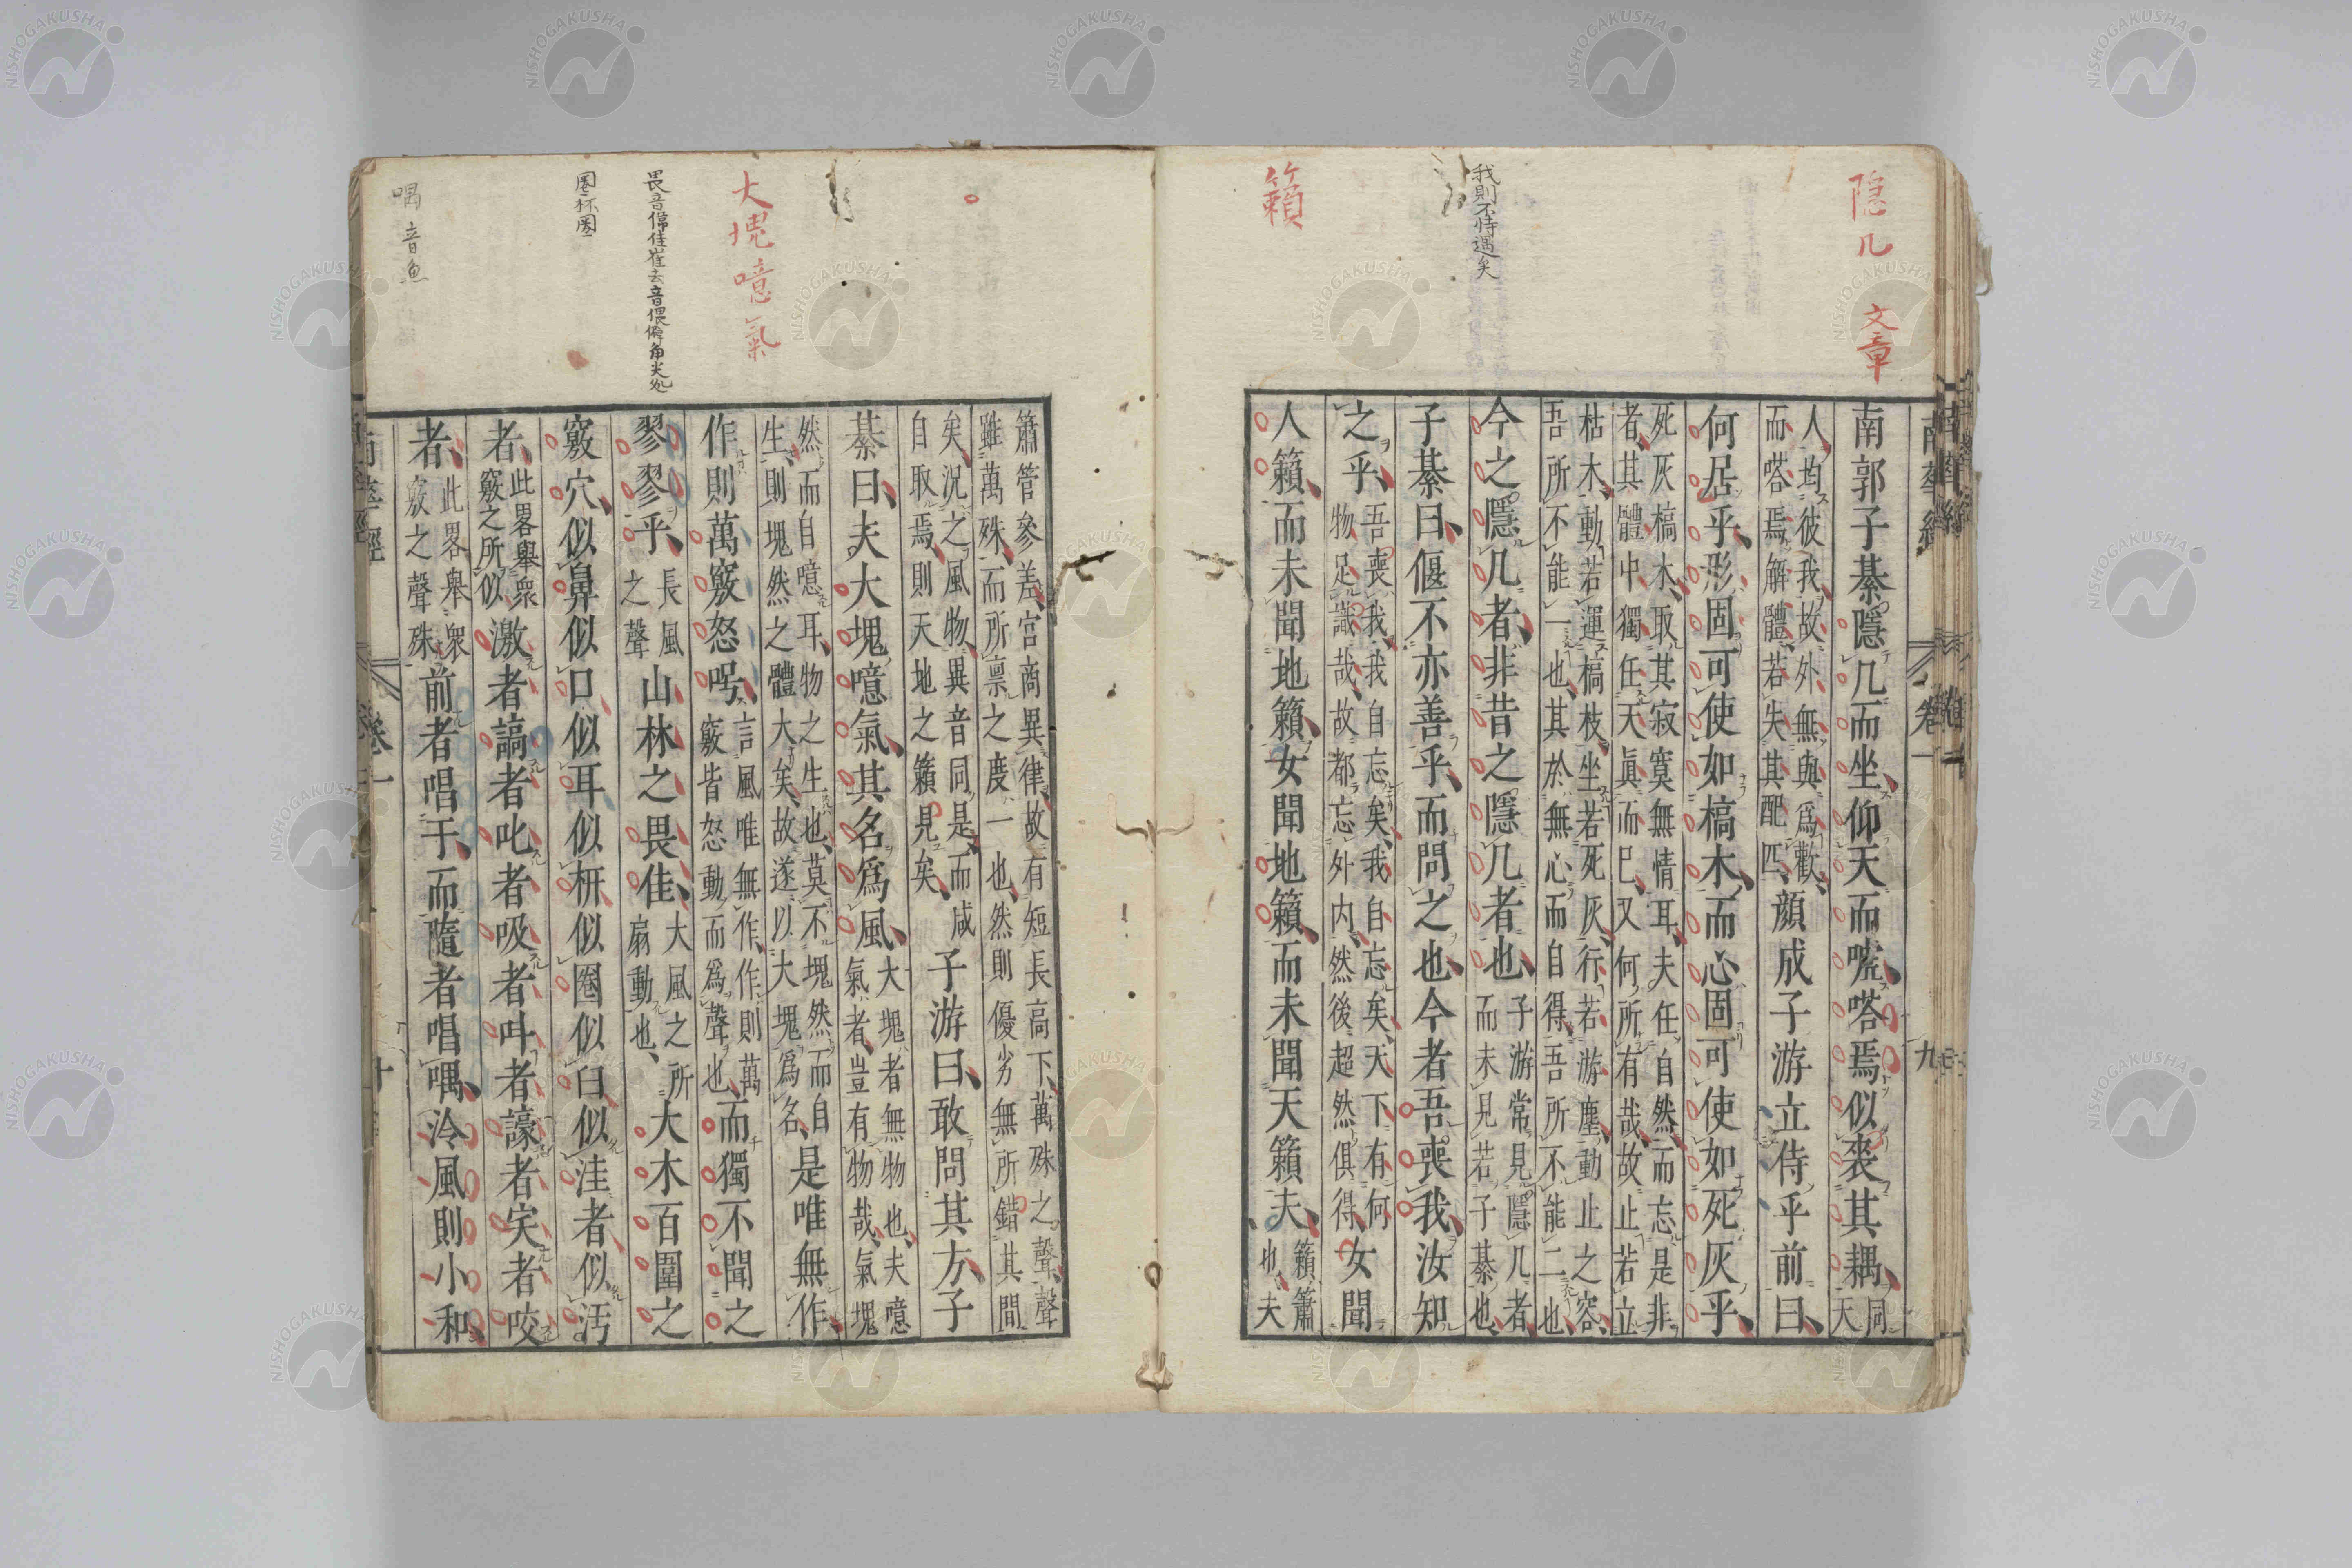 隠几
文章
南郭子綦隱几而坐仰天而噓嗒焉似喪其耦同天
人均彼我故外無與為歡
而嗒焉解體若失其配匹顏成子游立侍乎前曰
何居乎形固可使如槁木而心固可使如死灰乎
死灰槁木取其寂寞無情耳夫任自然而忘是非
者其體中獨任天真而已又何所有哉故止若立
枯木動若運槁枝坐若死灰行若游塵動止之容
吾所不能一也其於無心而自得吾所不能二也
今之隱几者非昔之隱几者也子游常見隱几者
而未見若子綦也
子綦曰偃不亦善乎而問之也今者吾喪我汝知
之乎吾喪我我自忘矣我自忘矣天下有何
物足識哉故都忘外內然後超然俱得女聞
人籟而未聞地籟女聞地籟而未聞天籟夫籟簫
也夫
我則不恃遇矣
籟
南華經
卷一
九
簫管參差宮商異律故有短長高下萬殊之聲聲
雖萬殊而所禀之度一也然則優劣無所錯其間
矣況之風物異音同是而咸
自取焉則天地之籟見矣子游曰敢問其方子
綦曰夫大塊噫氣其名為風大塊者無物也夫噫
氣者豈有物哉氣塊
然而自噫耳物之生也莫不塊然而自
生則塊然之體大矣故遂以大塊為名是唯無作
作則萬竅怒呺言風唯無作作則萬
竅皆怒動而為聲也而獨不聞之
翏翏乎長風
之聲山林之畏佳大風之所
扇動也大木百圍之
竅穴似鼻似口似耳似枅似圈似臼似洼者似汚
者此畧舉衆
竅之所似激者謞者叱者吸者叫者譹者宎者咬
者此畧舉衆
竅之聲殊前者唱于而隨者唱喁泠風則小和
大塊噫氣
圏杯圏
喁音魚
南華經
卷一
十